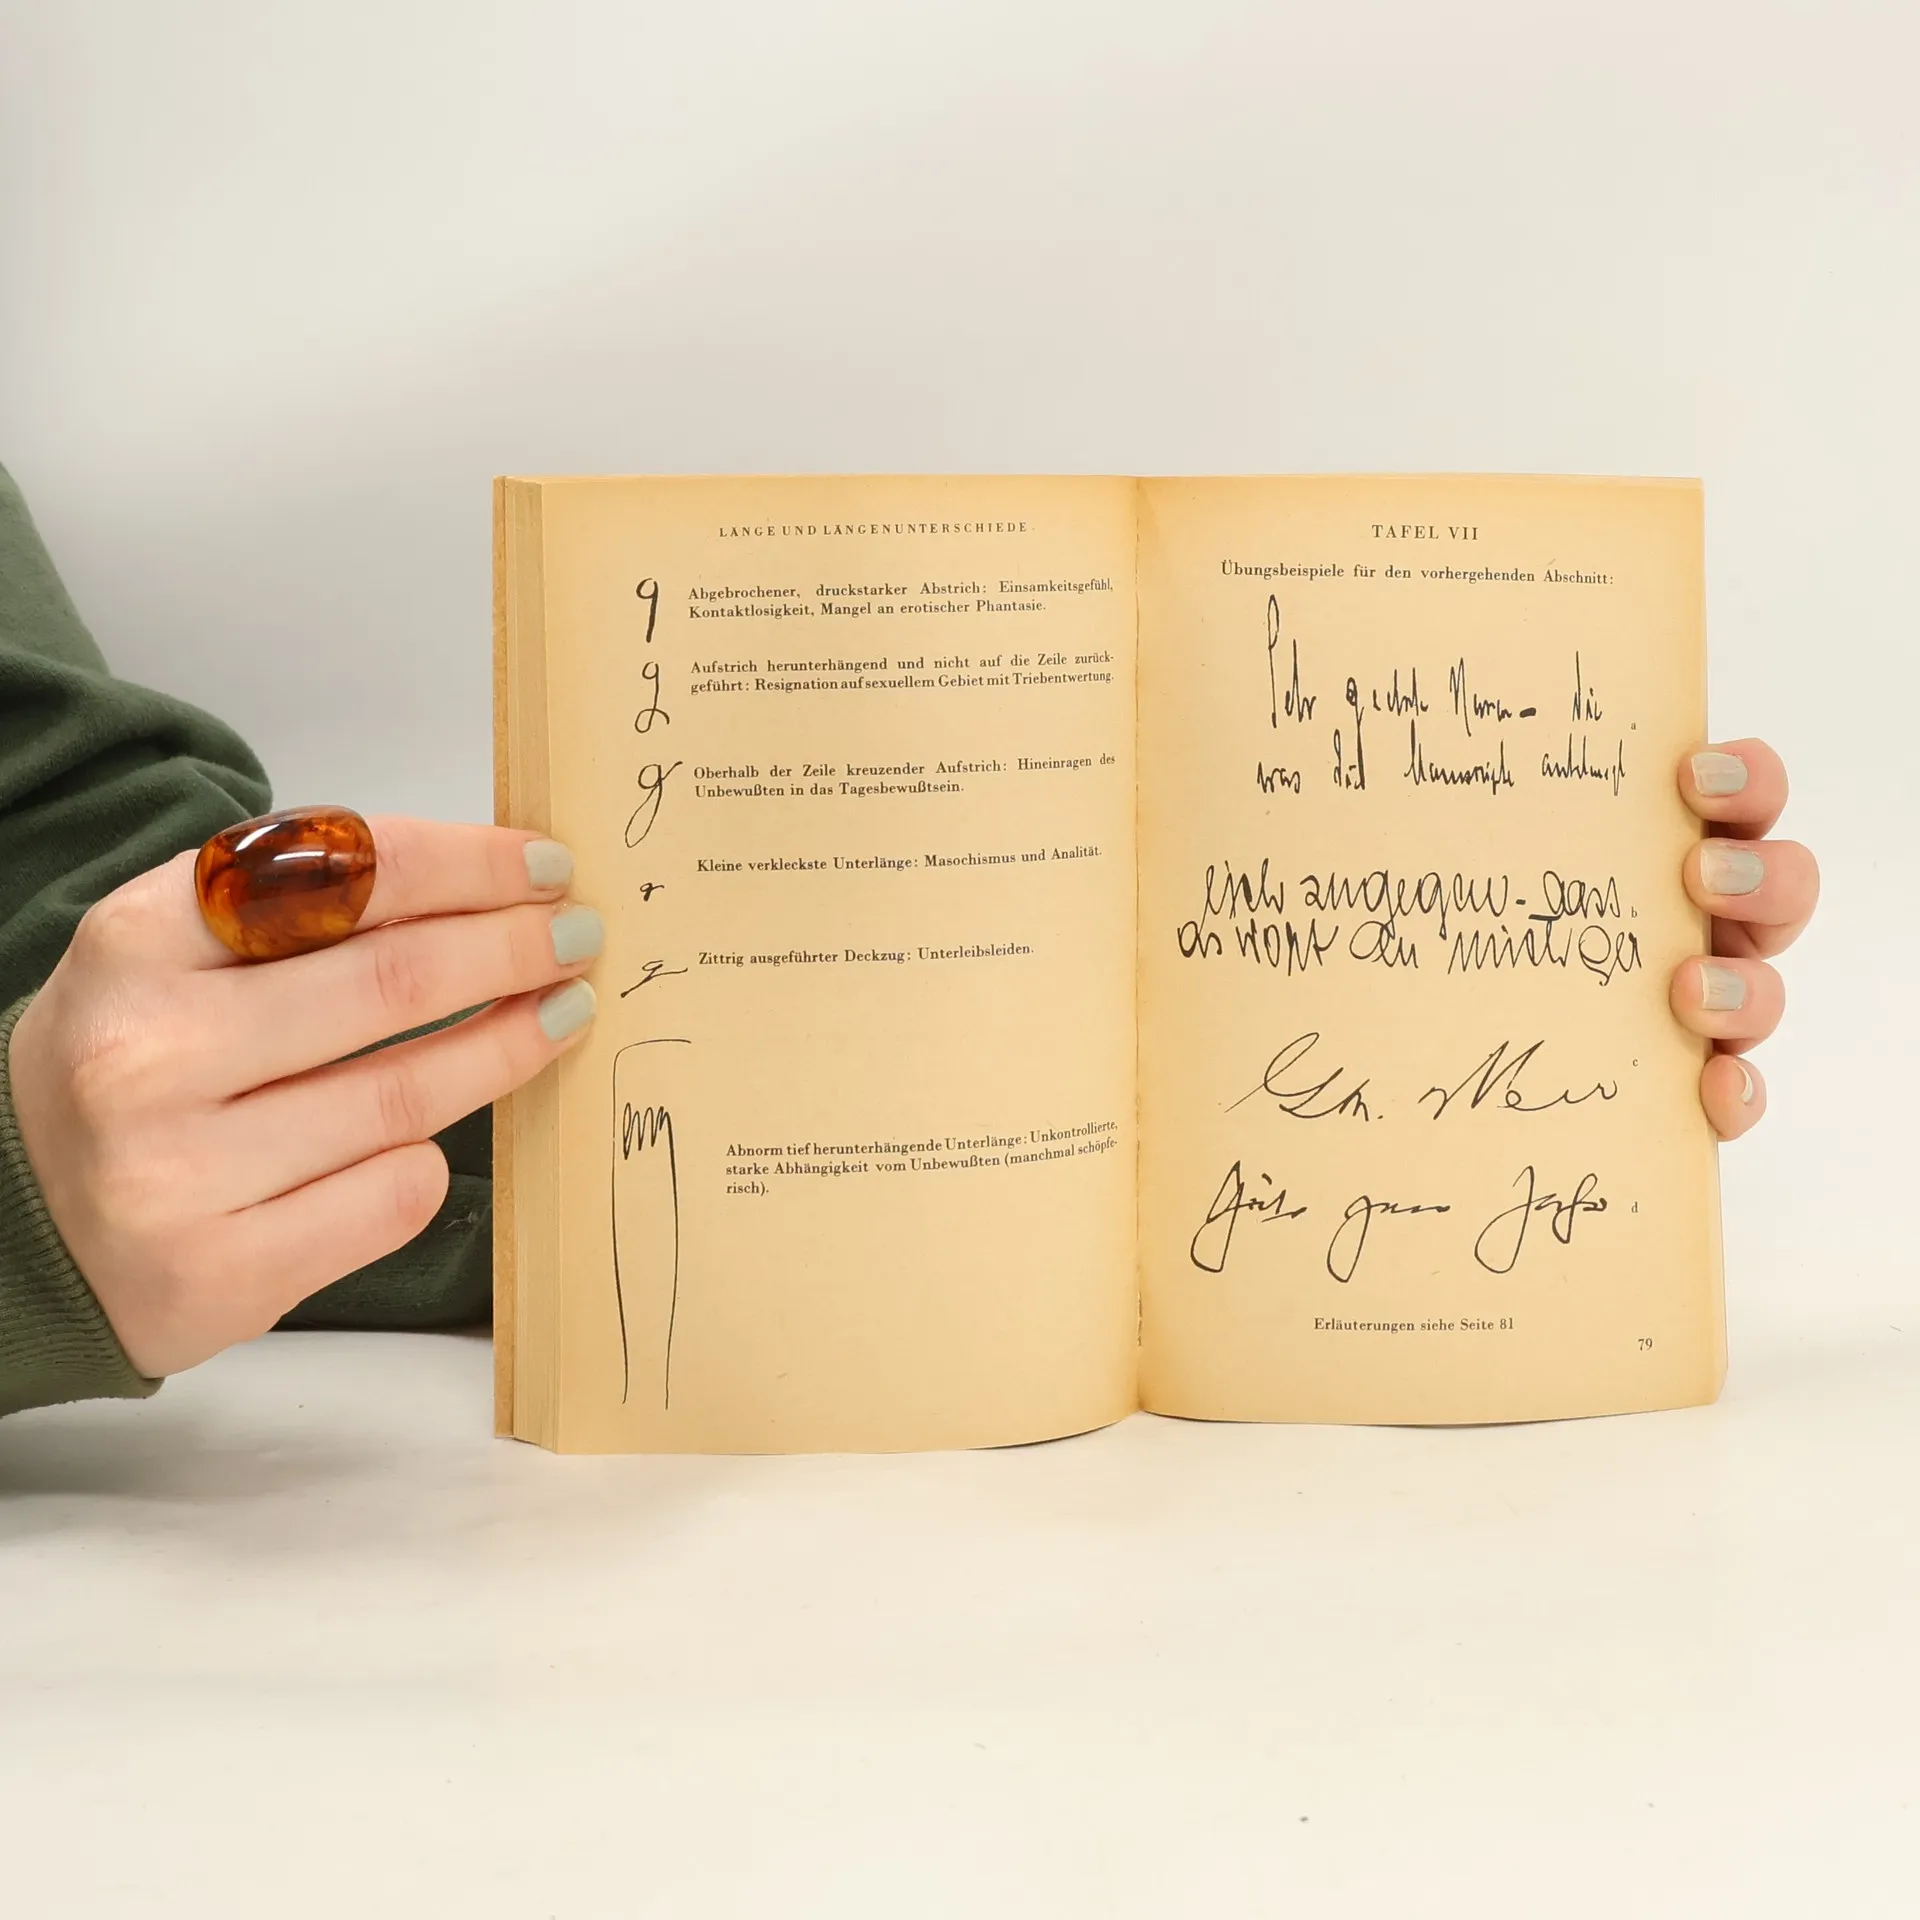 LÄNGE UND LÄNGENUNTERSCHIEDE
Abgebrochener, druckstarker Abstrich: Einsamkeitsgefühl,
Kontaktlosigkeit, Mangel an erotischer Phantasie.
Aufstrich herunterhängend und nicht auf die Zeile zurück-
geführt: Resignation auf sexuellem Gebiet mit Triebentwertung.
Oberhalb der Zeile kreuzender Aufstrich: Hineinragen des
Unbewußten in das Tagesbewußtsein.
Kleine verkleckste Unterlänge: Masochismus und Analität.
Zittrig ausgeführter Deckzug: Unterleibsleiden.
Abnorm tief herunterhängende Unterlänge: Unkontrollierte,
starke Abhängigkeit vom Unbewußten (manchmal schöpfe-
risch).
TAFEL VII
Übungsbeispiele für den vorhergehenden Abschnitt:
Sehr die a
was Manuscripte
zugegen - dass b
c
d
Erläuterungen siehe Seite 81
79